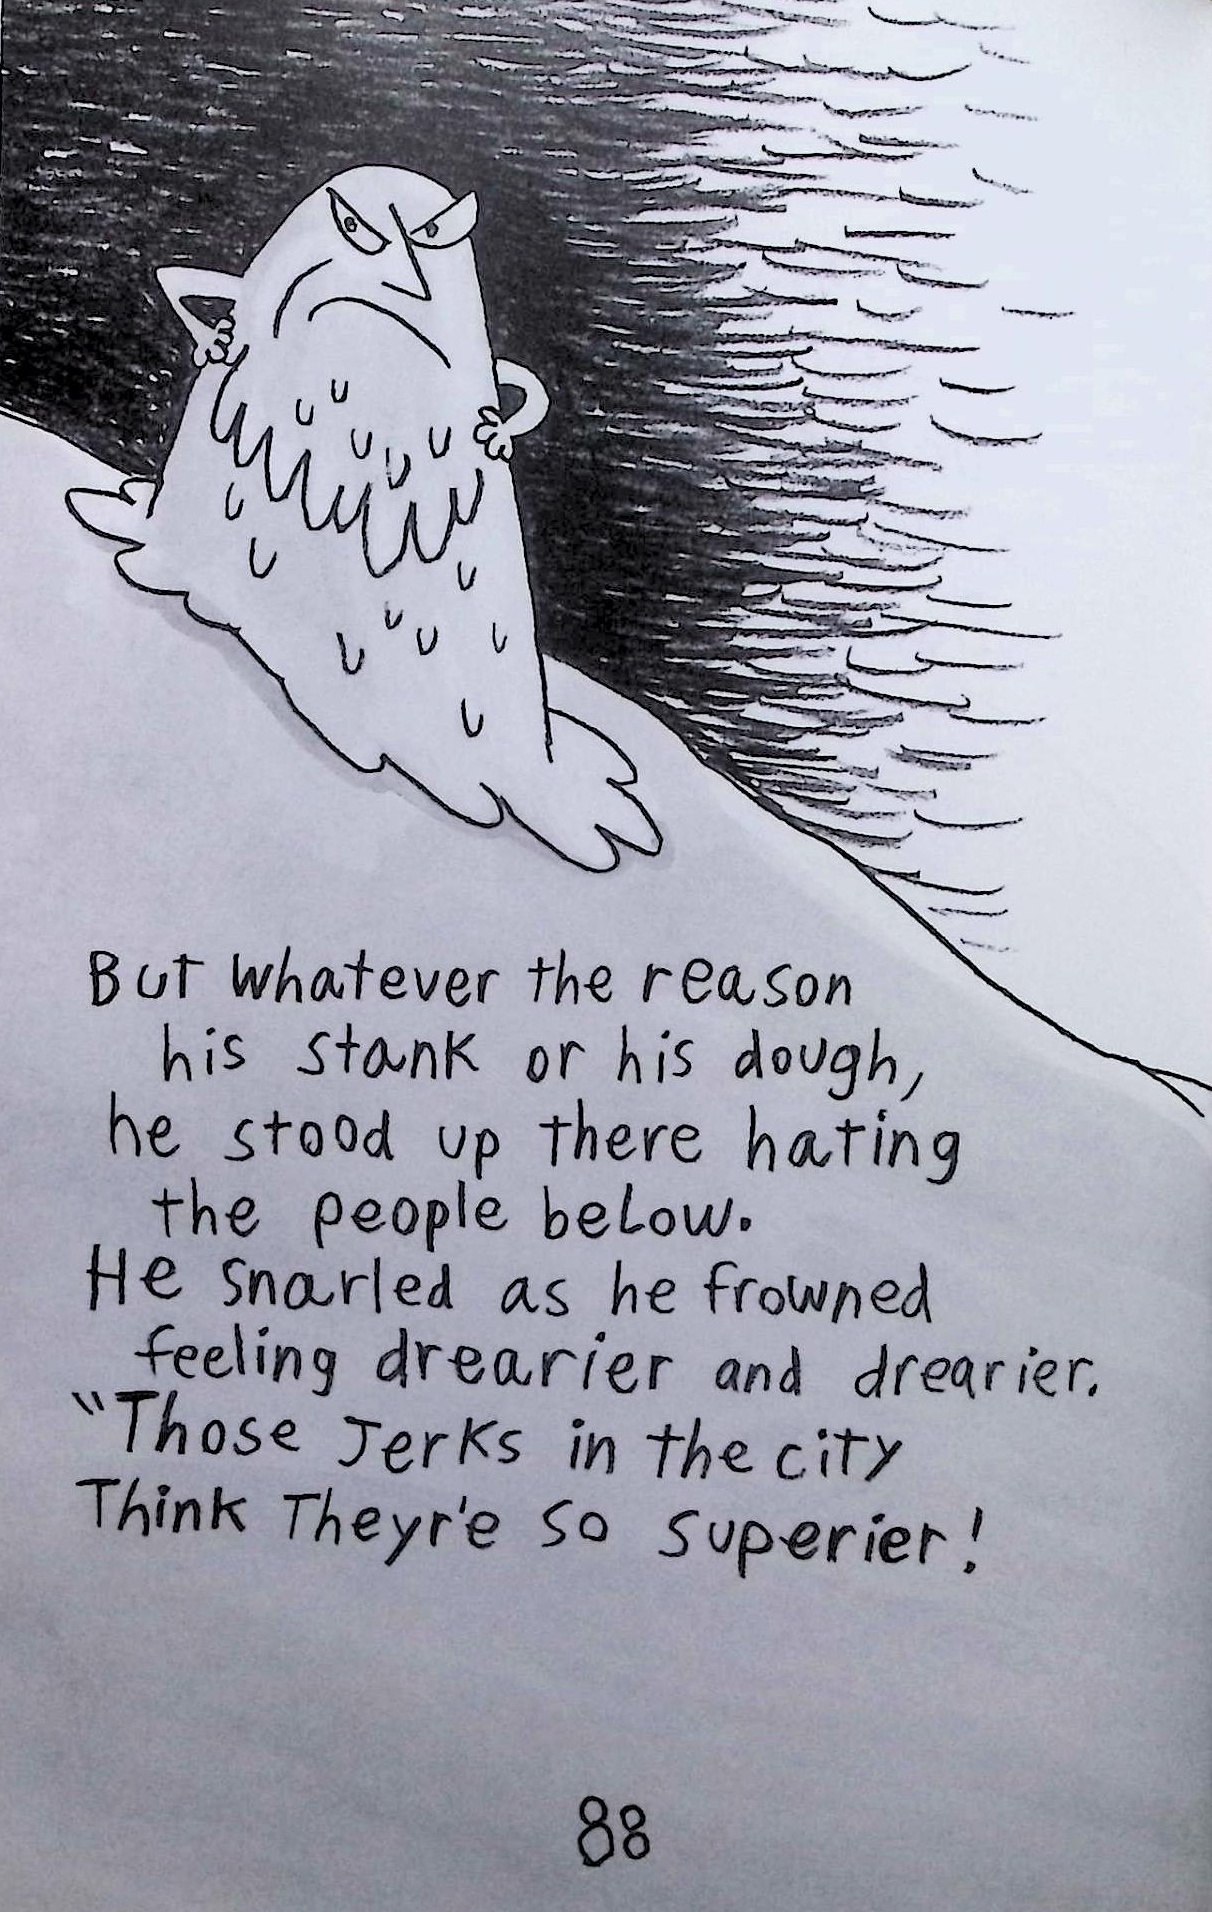 But whatever the reason
his stank or his dough,
he stood up there hating
the people below.
He snarled as he frowned
feeling drearier and drearier.
"Those Jerks in the city
Think Theyr'e so superier!
88